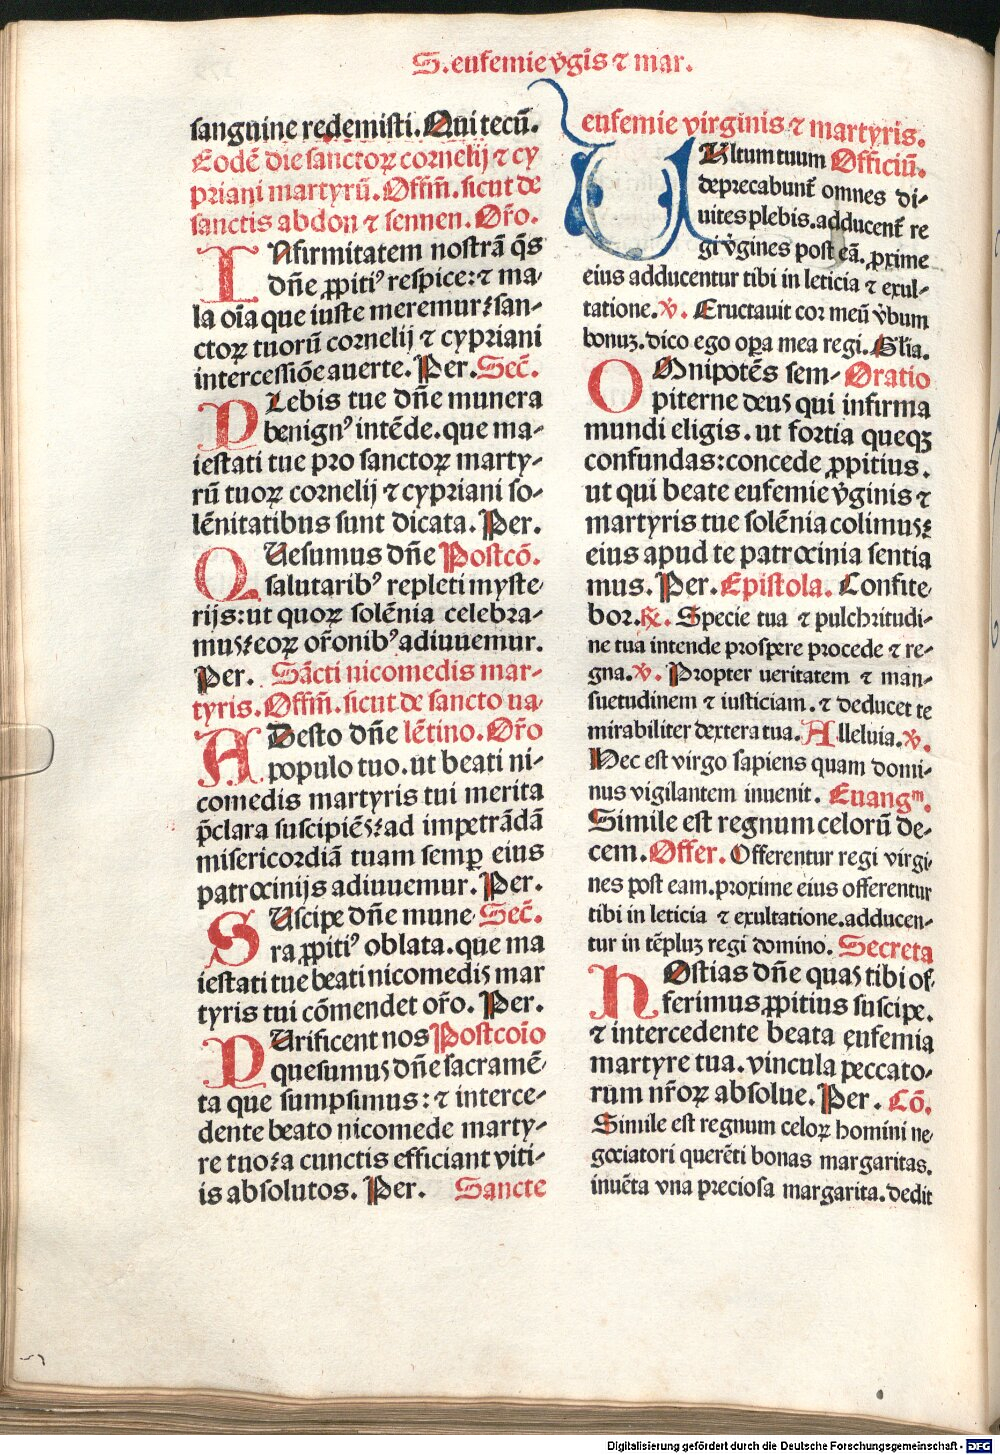 S. eufemie v̄gīs ⁊ mar.
sanguine redemisti. Qui tecū.
Eodē die sanctoꝝ cornelij ⁊ cy
priani martyrū. Offm̄. sicut de
sanctis abdon ⁊ sennen. Or̄o.
INfirmitatem nostrā q̄s
dn̄e ꝓpitiꝰ respice: ⁊ ma-
la oīa que iuste meremur: san-
ctoꝝ tuorū cornelij ⁊ cypriani
intercessiōe auerte. Per. Sec̄.
PLebis tue dn̄e munera
benignꝰ intēde. que ma-
iestati tue pro sanctoꝝ marty-
rū tuoꝝ cornelij ⁊ cypriani so-
lēnitatibus sunt dicata. Per.
QUesumus dn̄e Postcō.
salutaribꝰ repleti myste
rijs: ut quoꝝ solēnia celebra-
mus: eoꝝ or̄onibꝰ adiuuemur.
Per. Sācti nicomedis mar-
tyris. Offm̄. sicut de sancto ua
ADesto dn̄e lētino. Or̄o
populo tuo. ut beati ni-
comedis martyris tui merita
p̄clara suscipiēs: ad impetrādā
misericordiā tuam semꝑ eius
patrocinijs adiuuemur. Per.
SUscipe dn̄e mune- Sec̄.
ra ꝓpitiꝰ oblata. que ma
iestati tue beati nicomedis mar
tyris tui cōmendet or̄o. Per.
PUrificent nos Postcoīo
quesumus dn̄e sacramē-
ta que sumpsimus: ⁊ interce-
dente beato nicomede marty-
re tuo: a cunctis efficiant viti-
is absolutos. Per. Sancte
eufemie virginis ⁊ martyris.
VUltum tuum Officiū.
deprecabunt̄ omnes di-
uites plebis. adducent̄ re
gi v̄gines post eā. ꝓxime
eius adducentur tibi in leticia ⁊ exul-
tatione. ℣. Eructauit cor meū v̄bum
bonuꝫ. dico ego oꝑa mea regi. Gl̄ia.
OMnipotēs sem- Oratio
piterne deus qui infirma
mundi eligis. ut fortia queqꝫ
confundas: concede ꝓpitius.
ut qui beate eufemie v̄ginis ⁊
martyris tue solēnia colimus:
eius apud te patrocinia sentia
mus. Per. Epistola. Confite-
bor. ℟. Specie tua ⁊ pulchritudi-
ne tua intende prospere procede ⁊ re-
gna. ℣. Propter ueritatem ⁊ man-
suetudinem ⁊ iusticiam. ⁊ deducet te
mirabiliter dextera tua. Alleluia. ℣.
Hec est virgo sapiens quam domi-
nus vigilantem inuenit. Euangᵐ.
Simile est regnum celorū de-
cem. Offer. Offerentur regi virgi-
nes post eam. proxime eius offerentur
tibi in leticia ⁊ exultatione. adducen-
tur in tēpluꝫ regi domino. Secreta
HOstias dn̄e quas tibi of-
ferimus ꝓpitius suscipe.
⁊ intercedente beata eufemia
martyre tua. vincula peccato-
rum nr̄oꝝ absolue. Per. Cō.
Simile est regnum celoꝝ homini ne-
gociatori querēti bonas margaritas.
inuēta vna preciosa margarita. dedit
Digitalisierung gefördert durch die Deutsche Forschungsgemeinschaft - DFG